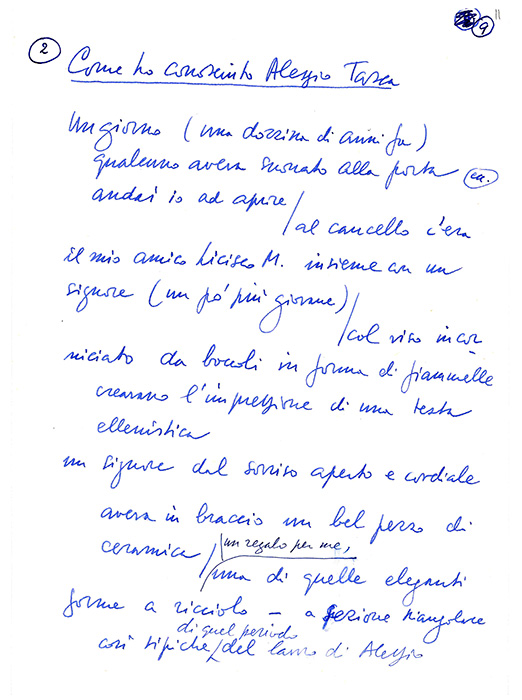 9
2
Come ho conosciuto Alessio Tasca
Un giorno (una dozzina di anni fa)
qualcuno aveva suonato alla porta
andai io ad aprire / al cancello c'era
il mio amico Licisco M. insieme con un
signore (un po' più giovane)
/ col viso incor
niciato da boccoli in forma di fiammelle
creavano l'impressione di una testa
ellenistica
un signore dal sorriso aperto e cordiale
aveva in braccio un bel pezzo di
ceramica / un regalo per me,
/ una di quelle eleganti
forme a ricciolo – a sezione triangolare
così tipiche / di quel periodo del lavoro di Alessio